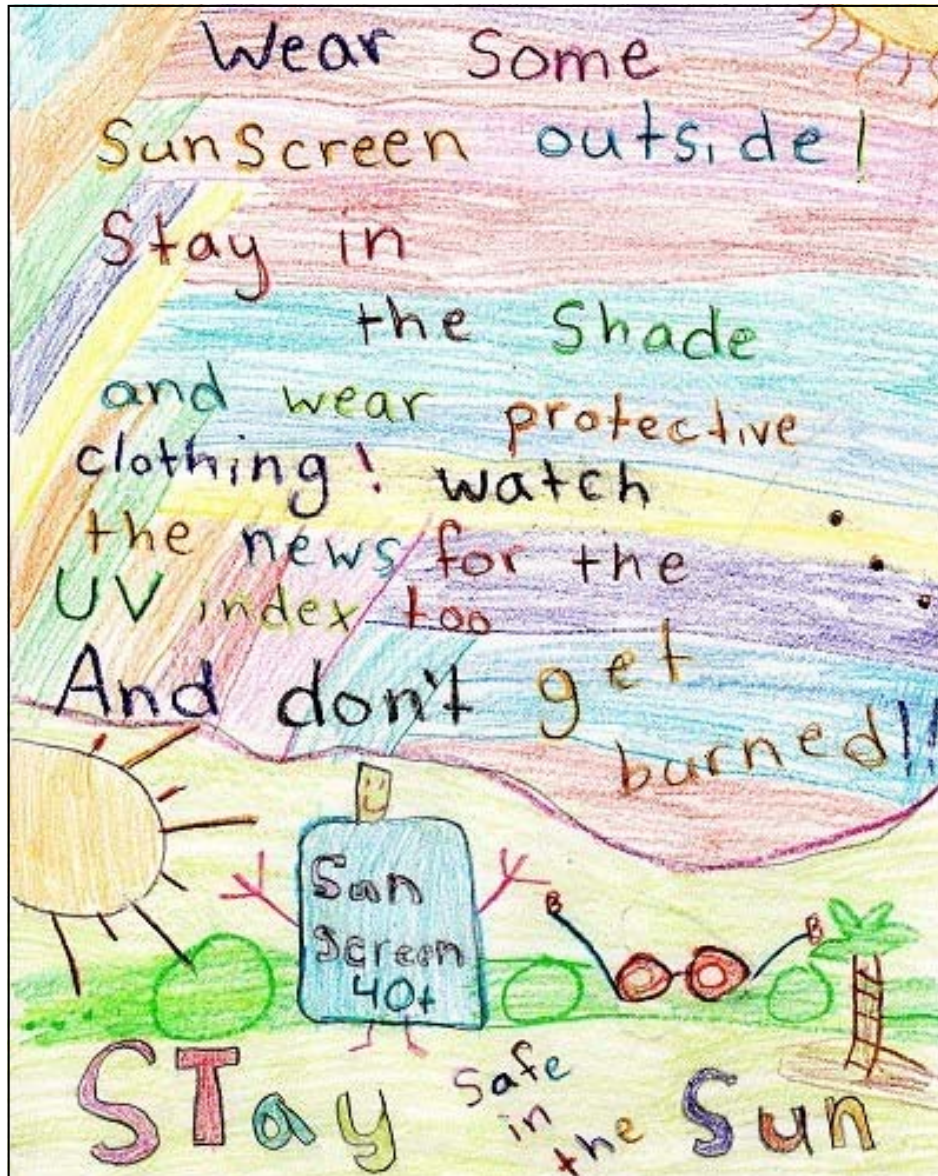 Wear Some
SunScreen outside!
Stay in
the Shade
and wear protective
clothing! watch
the news for the
UV index too
And don't get
burned!!
Sun
Screen
40+
STay safe
in
the Sun